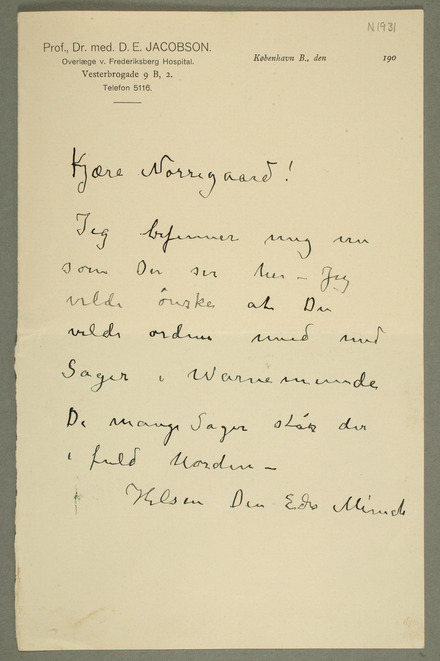 N 1931
Prof., Dr. med. D. E. JACOBSON.
Overlæge v. Frederiksberg Hospital.
Vesterbrogade 9 B, 2.
Telefon 5116.
København B., den 190
Kjære Nørregaard!
Jeg befinner meg nu
som De ser her – Jeg
vilde ønske at Du
vilde ordne med
Sager i Warnemünde
De mange Sager står der
i fuld Uorden –
Hilsen Din Edv Munch